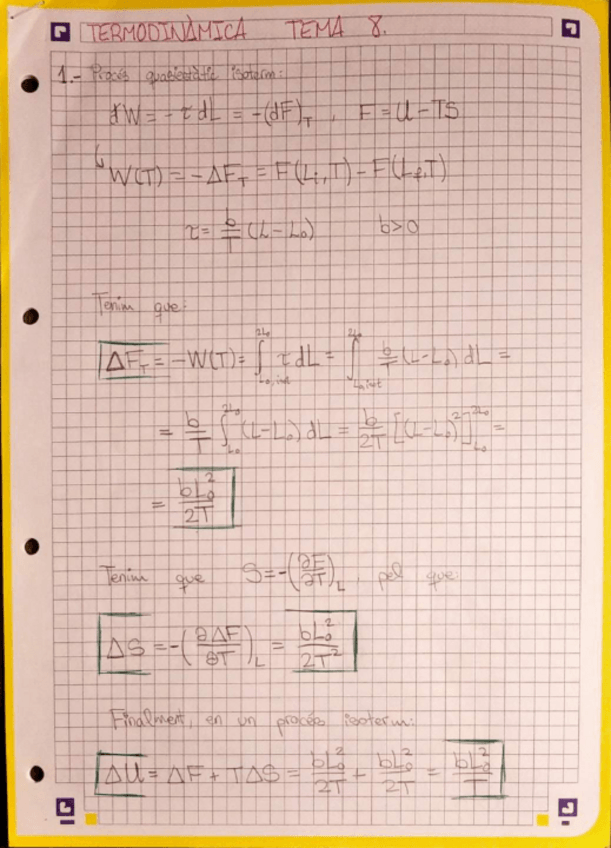 TERMODINÀMICA TEMA 8.
1.- Procés quasiestàtic isoterm:
đW = - τ dL = -(dF)_T , F = U - TS
↳ W(T) = - ΔF_T = F(L_i, T) - F(L_f, T)
τ = b/T (L - L₀) b > 0
Tenim que:
ΔF_T = -W(T) = ∫_{L₀, init}^{2L₀} τ dL = ∫_{L₀ init}^{2L₀} b/T (L - L₀) dL =
= b/T ∫_{L₀}^{2L₀} (L - L₀) dL = b/2T [(L - L₀)²]_{L₀}^{2L₀} =
= bL₀²/2T
Tenim que S = -(∂F/∂T)_L , pel que:
ΔS = -(∂ΔF/∂T)_L = bL₀²/2T²
Finalment, en un procés isoterm:
ΔU = ΔF + TΔS = bL₀²/2T + bL₀²/2T = bL₀²/T